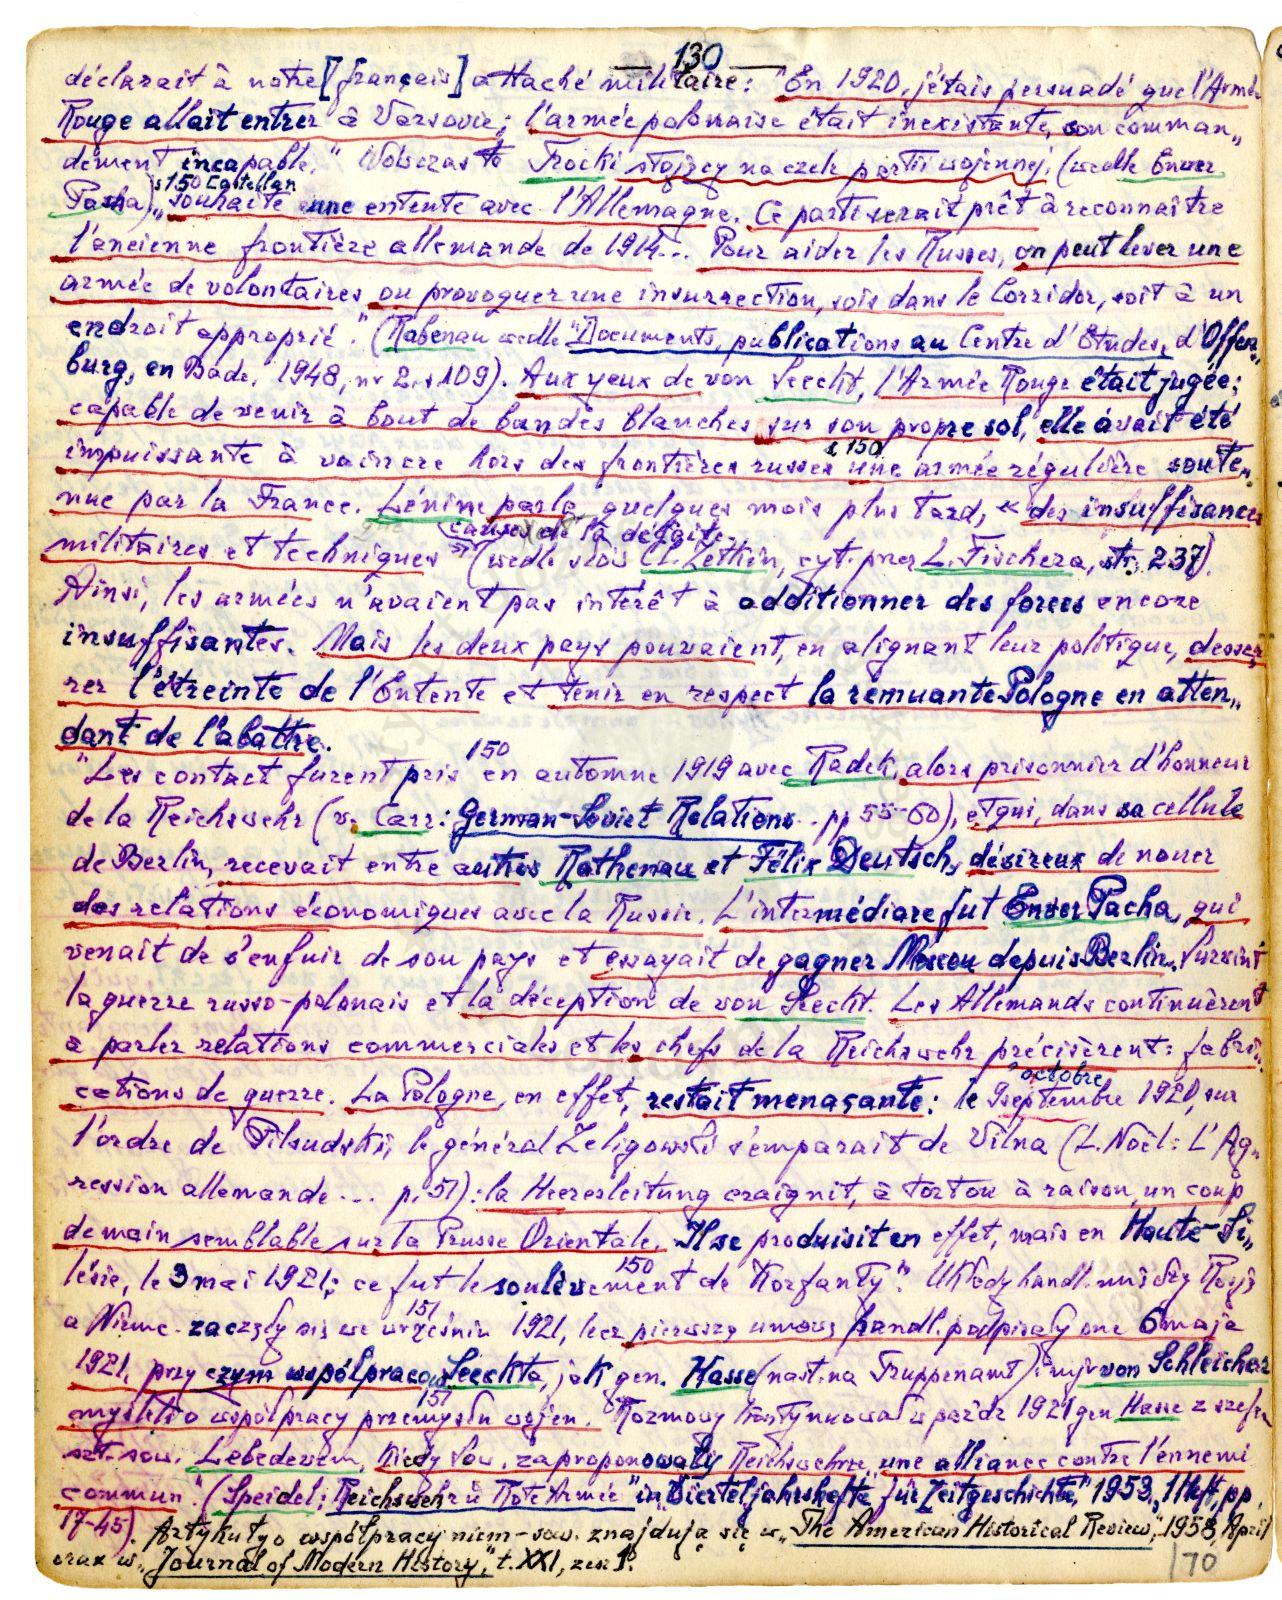 — 130 —
déclarait à notre [français] attaché militaire: "En 1920, j'étais persuadé que l'Armée
Rouge allait entrer à Varsovie; l'armée polonaise était inexistante, son comman„
dement incapable." Wówczas to Trocki stojący na czele partii wojennej, (wedle Enver
s 150 Castellan
Pasha) „souhaite une entente avec l'Allemagne. Ce parti serait prêt à reconnaître
l'ancienne frontière allemande de 1914... Pour aider les Russes, on peut lever une
armée de volontaires ou provoquer une insurrection, sois dans le Corridor, soit à un
endroit approprié." (Rabenau wedle "Documents, publications au Centre d'Etudes, d'Offen„
burg, en Bade, 1948, nr 2, s 109). Aux yeux de von Seeckt, l'Armée Rouge était jugée;
capable de venir à bout de bandes blanches sur son propre sol, elle avait été
s 150
impuissante à vaincre hors des frontières russes une armée régulière soute„
nue par la France. Lénine parla quelques mois plus tard, « des insuffisances
causes de la défaite
militaires et techniques » (wedle słów Cl. Zetkin, cyt. przez L. Fischera, str. 237).
Ainsi, les armées n'avaient pas intérêt à additionner des forces encore
insuffisantes. Mais les deux pays pouvaient, en alignant leur politique, desser„
rer l'étreinte de l'Entente et tenir en respect la remuante Pologne en atten„
dant de l'abattre.
150
"Les contact furent pris en automne 1919 avec Radek, alors prisonnier d'honneur
de la Reichswehr (v. Carr: German-Soviet Relations.. pp 55-60), et qui, dans sa cellule
de Berlin, recevait entre autres Rathenau et Félix Deutsch, désireux de nouer
des relations économiques avec la Russie. L'intermédiare fut Enver Pacha, qui
venait de s'enfuir de son pays et essayait de gagner Moscou depuis Berlin. Survint
la guerre russo-polonais et la déception de von Seeckt. Les Allemands continuèrent
à parler relations commerciales et les chefs de la Reichswehr précisèrent: fabri„
cations de guerre. La Pologne, en effet, restait menaçante: le 9 septembre 1920, sur
octobre
l'ordre de Pilsudski, le général Zeligowski s'emparait de Vilna (L. Noël: L'Ag„
ression allemande... p. 51): la Heeresleitung craignit, à tort ou à raison, un coup
de main semblable sur la Prusse Orientale. Il se produisit en effet, mais en Haute-Si„
lésie, le 3 mai 1921; ce fut le soulèvement de Korfanty." Układy handl. między Rosją
150
a Niemc. zaczęły się we wrześniu 1921, lecz pierwszą umowę handl. podpisały one 6 maja
151
1921, przy czym współpracow. Seeckta, jak gen. Hasse (nast. na Truppenamt) i mjr von Schleicher
myśleli o współpracy przemysłu wojen. Rozmowy kontynuował w paźdz 1921 gen Hasse z szefem
151
szt. sow. Lebedevem, kiedy Sow. zaproponowały Reichswehrze „une alliance contre l'ennemi
commun". (Speidel; Reichswehr u Rote Armee" in „Vierteljahrshefte für Zeitgeschichte," 1953, 1 Heft, pp
17-45). Artykuły o współpracy niem-sow. znajdują się w „The American Historical Review," 1958, April
oraz w „Journal of Modern History", t. XXI, zesz 1.
170